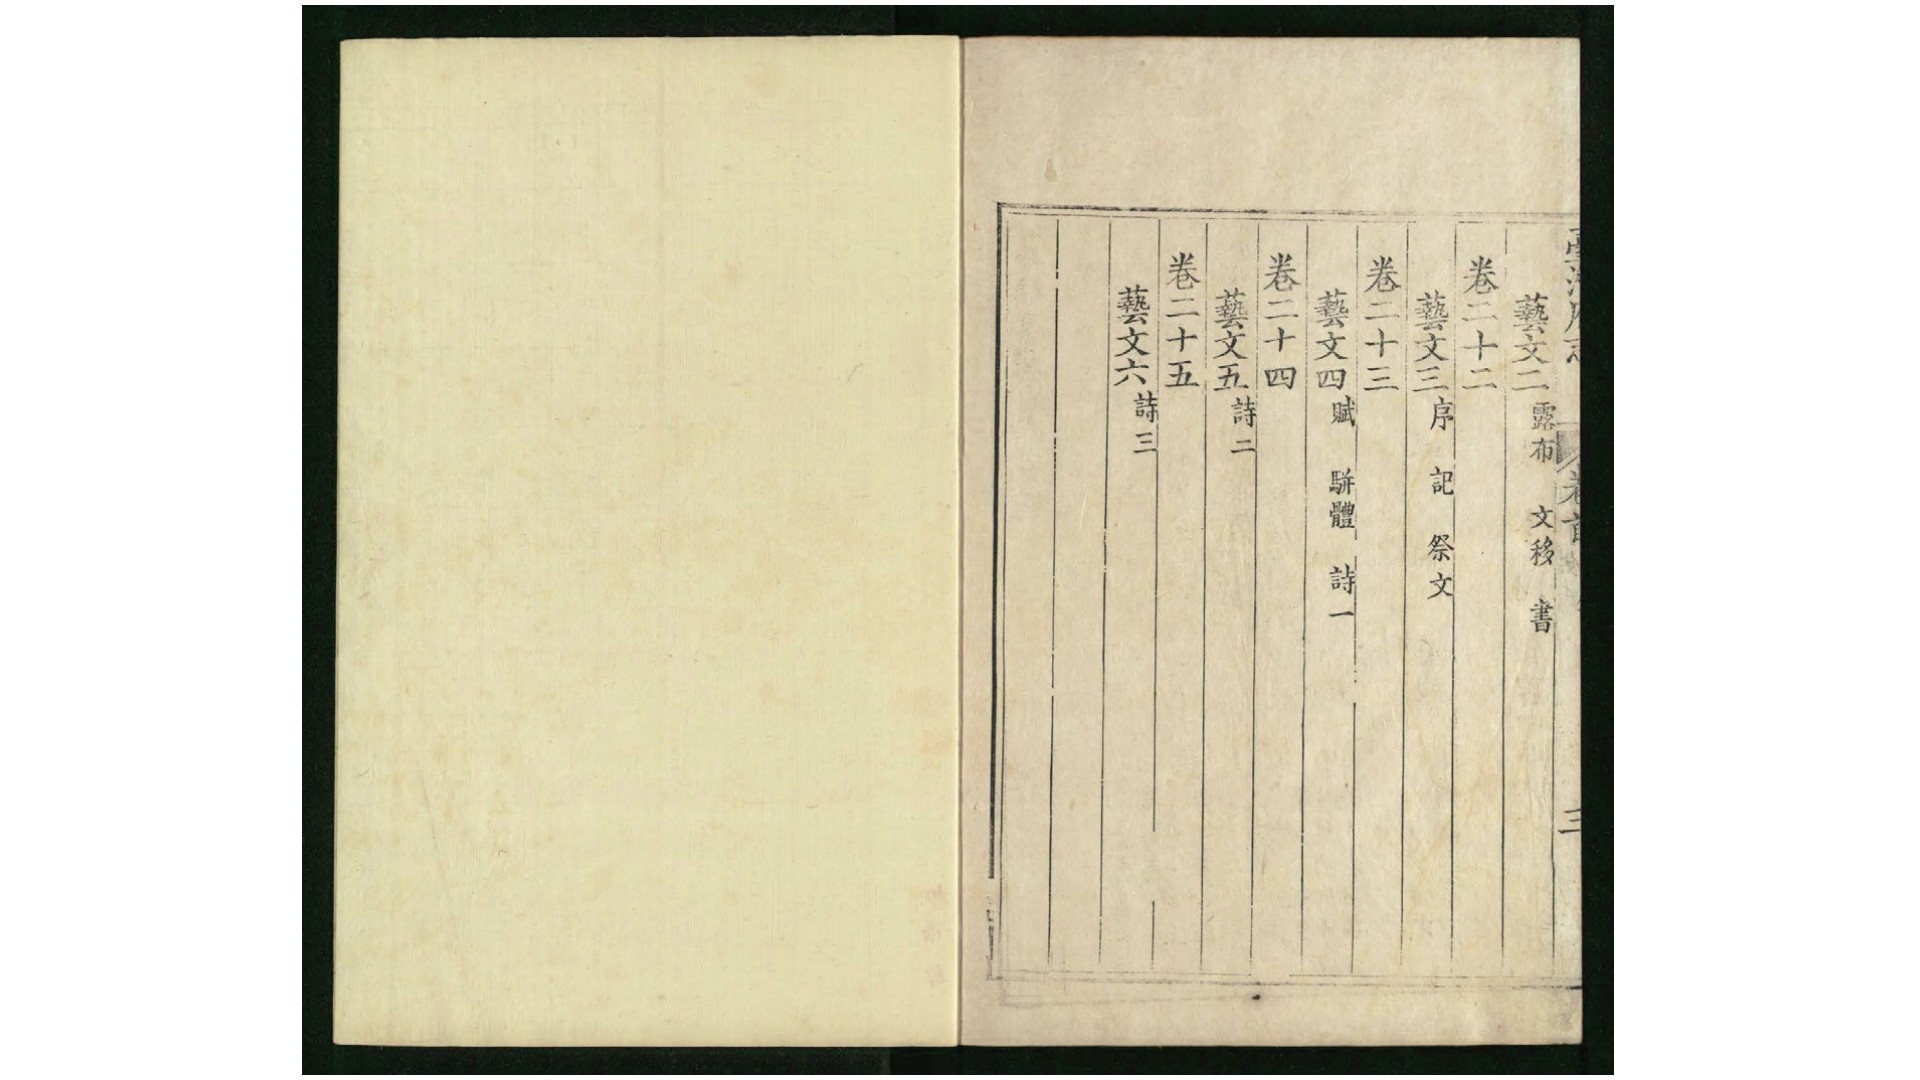 臺灣府志 卷首 三
藝文二 露布 文移 書
卷二十二
藝文三 序 記 祭文
卷二十三
藝文四 賦 駢體 詩一
卷二十四
藝文五 詩二
卷二十五
藝文六 詩三